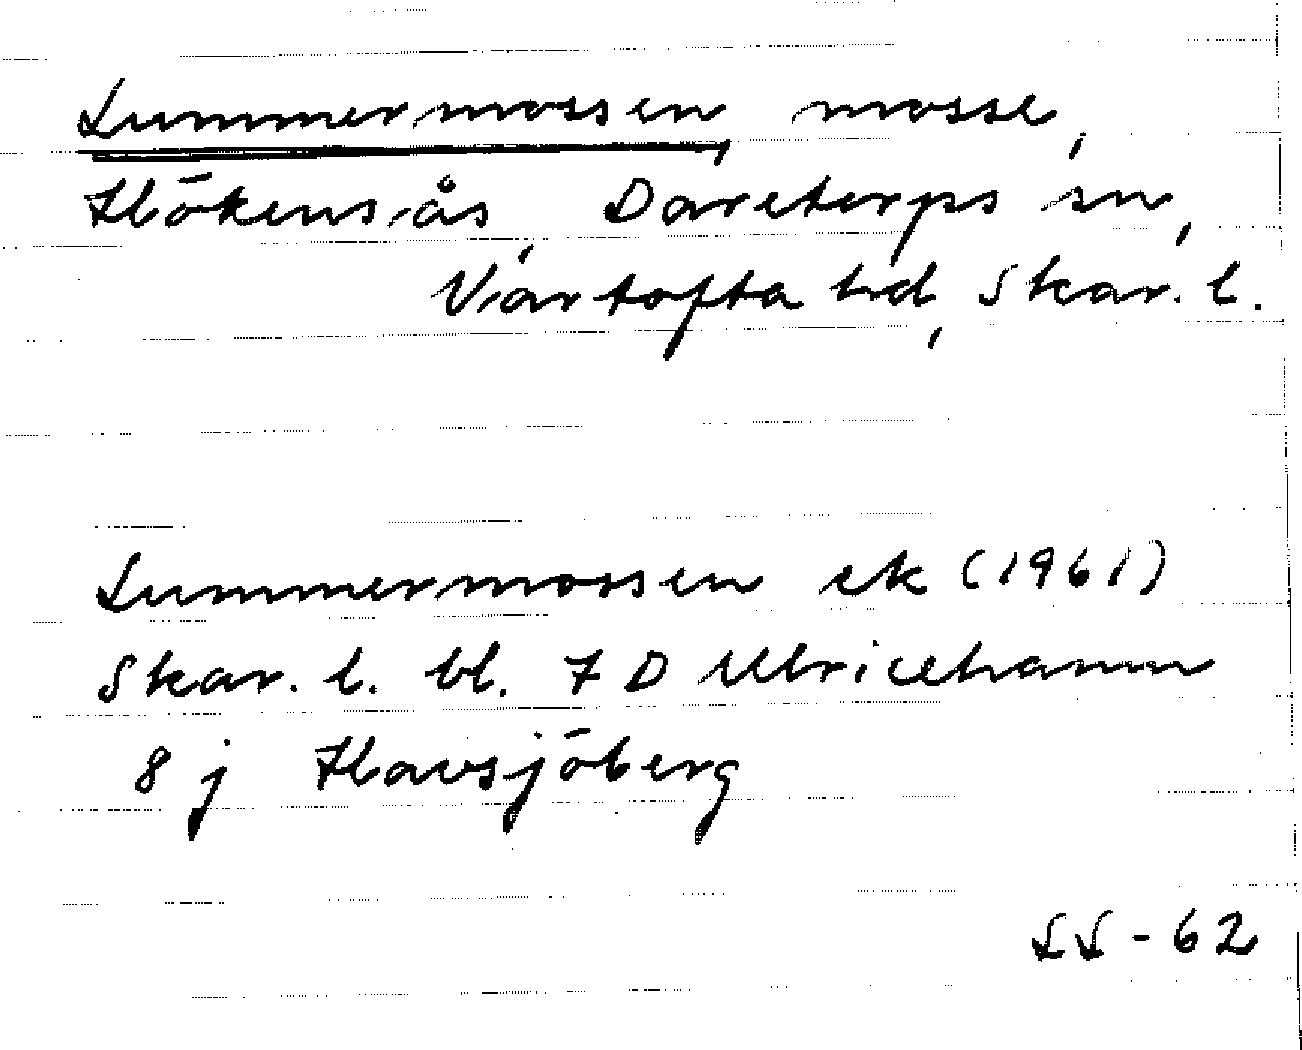 Lummermossen, mosse,
Hökensås, Daretorps sn,
Vartofta hd, Skar. l.
Lummermossen ek (1961)
Skar. l. bl. 7 D Ulricehamn
8 j Havsjöberg
SS - 62